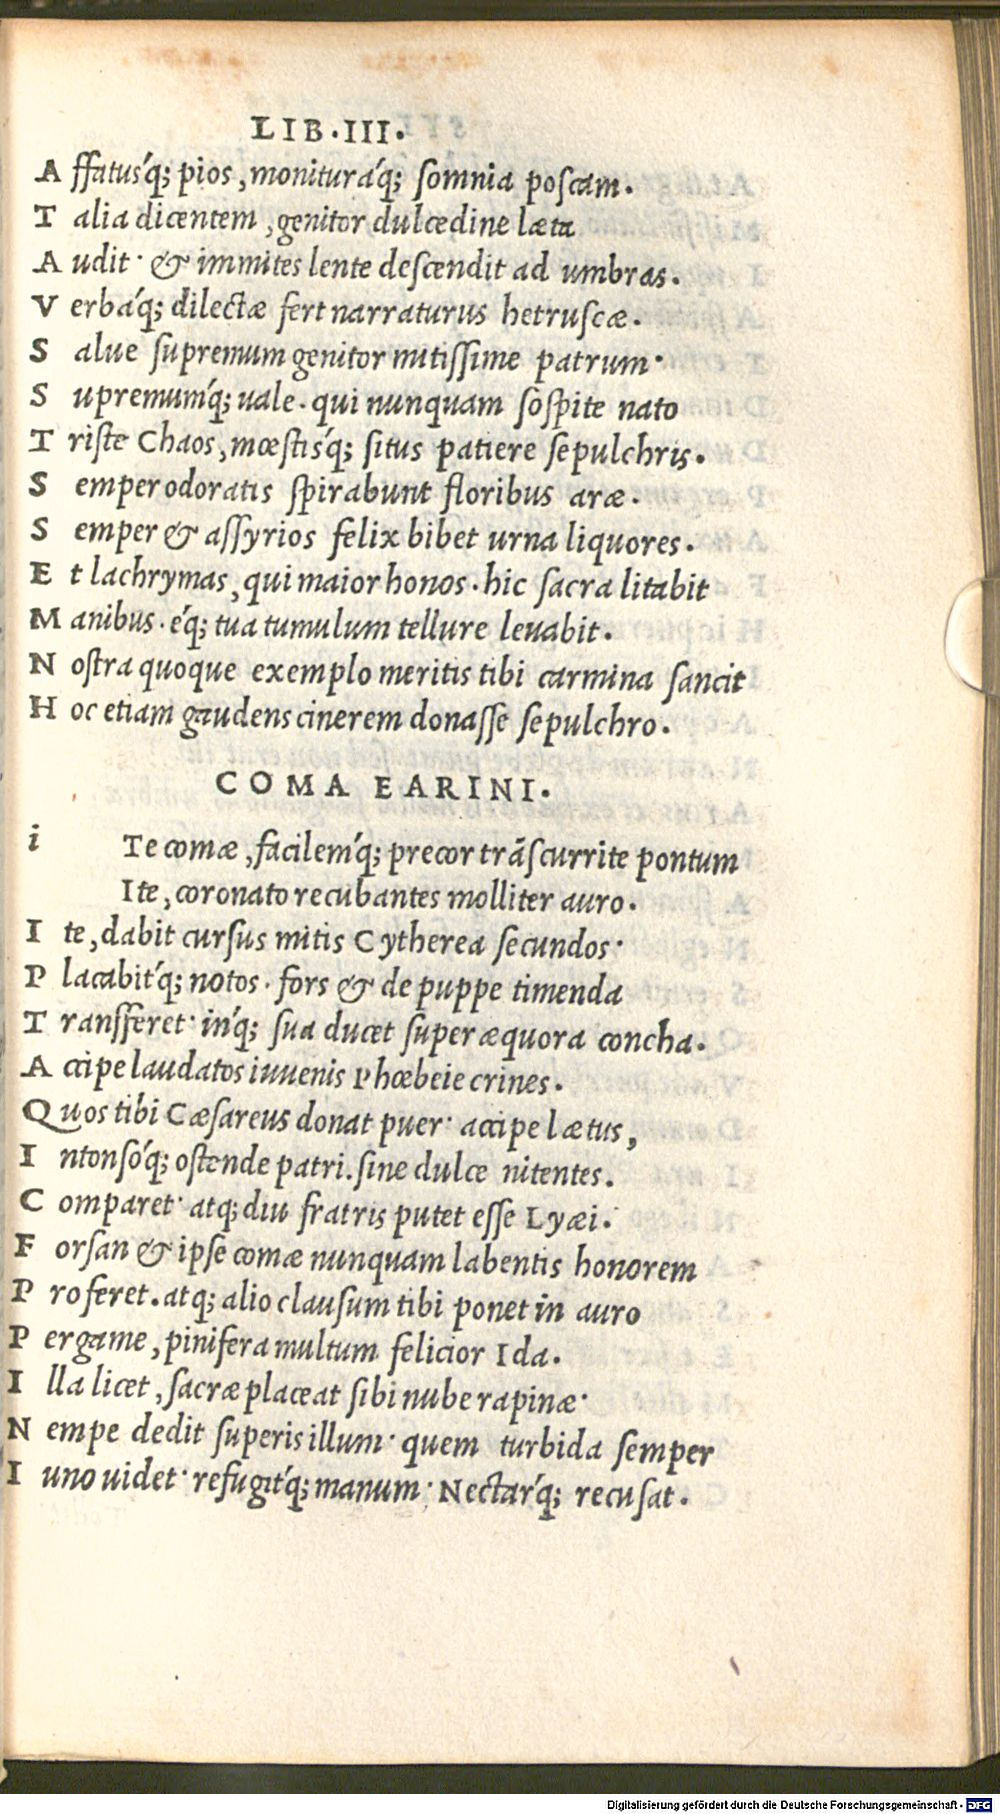 LIB.III.
A ffatus'q; pios, monitura'q; somnia poscam.
T alia dicentem, genitor dulcedine læta
A udit· & immites lente descendit ad umbras.
V erba'q; dilectæ fert narraturus hetruscæ.
S alue supremum genitor mitissime patrum·
S upremum'q; uale. qui nunquam sospite nato
T riste Chaos, mœstis'q; situs patiere sepulchris.
S emper odoratis spirabunt floribus aræ.
S emper & assyrios felix bibet urna liquores.
E t lachrymas, qui maior honos. hic sacra litabit
M anibus. e'q; tua tumulum tellure leuabit.
N ostra quoque exemplo meritis tibi carmina sancit
H oc etiam gaudens cinerem donasse sepulchro.
COMA EARINI.
i Te comæ, facilem'q; precor trãscurrite pontum
Ite, coronato recubantes molliter auro.
I te, dabit cursus mitis Cytherea secundos·
P lacabit'q; notos. fors & de puppe timenda
T ransferet· in'q; sua ducet super æquora concha.
A ccipe laudatos iuuenis Phœbeie crines.
Quos tibi Cæsareus donat puer· accipe lætus,
I ntonso'q; ostende patri. sine dulce nitentes.
C omparet· atq; diu fratris putet esse Lyæi.
F orsan & ipse comæ nunquam labentis honorem
P roferet. atq; alio clausum tibi ponet in auro
P ergame, pinifera multum felicior Ida.
I lla licet, sacræ placeat sibi nube rapinæ·
N empe dedit superis illum· quem turbida semper
I uno uidet· refugit'q; manum· Nectar'q; recusat.
Digitalisierung gefördert durch die Deutsche Forschungsgemeinschaft - DFG